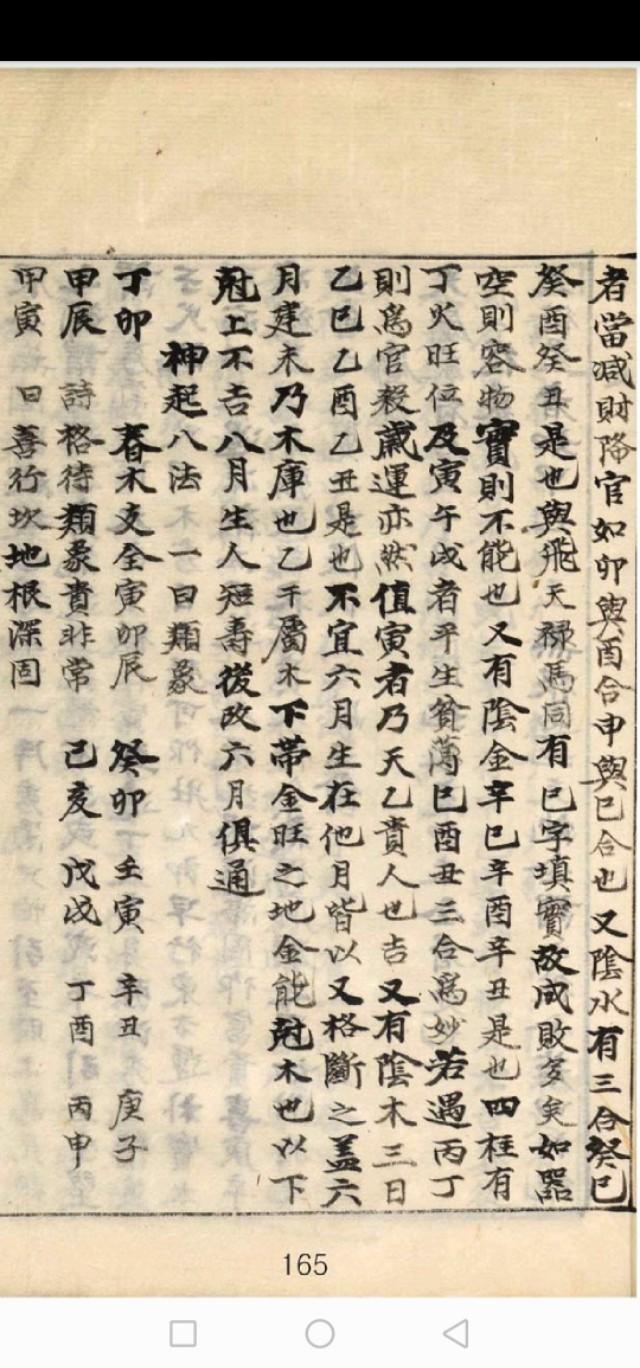 者當减財降官如卯與酉合申與巳合也又陰水有三合癸巳
癸酉癸丑是也與飛天禄馬同有巳字填實故成敗多矣如器
空則容物實則不能也又有陰金辛巳辛酉辛丑是也四柱有
丁火旺位及寅午戌者平生貧薄巳酉丑三合為妙若遇丙丁
則為官殺歲運亦然值寅者乃天乙貴人也吉又有陰木三日
乙巳乙酉乙丑是也不宜六月生在他月皆以又格斷之盖六
月建未乃木庫也乙干屬木下带金旺之地金能尅木也以下
尅上不吉八月生人短壽後改六月俱通
神起八法 一曰類象
丁卯 春木支全寅卯辰 癸卯 壬寅 辛丑 庚子
甲辰 詩格待類象貴非常 己亥 戊戌 丁酉 丙申
甲寅 曰善行坎地根深固
165